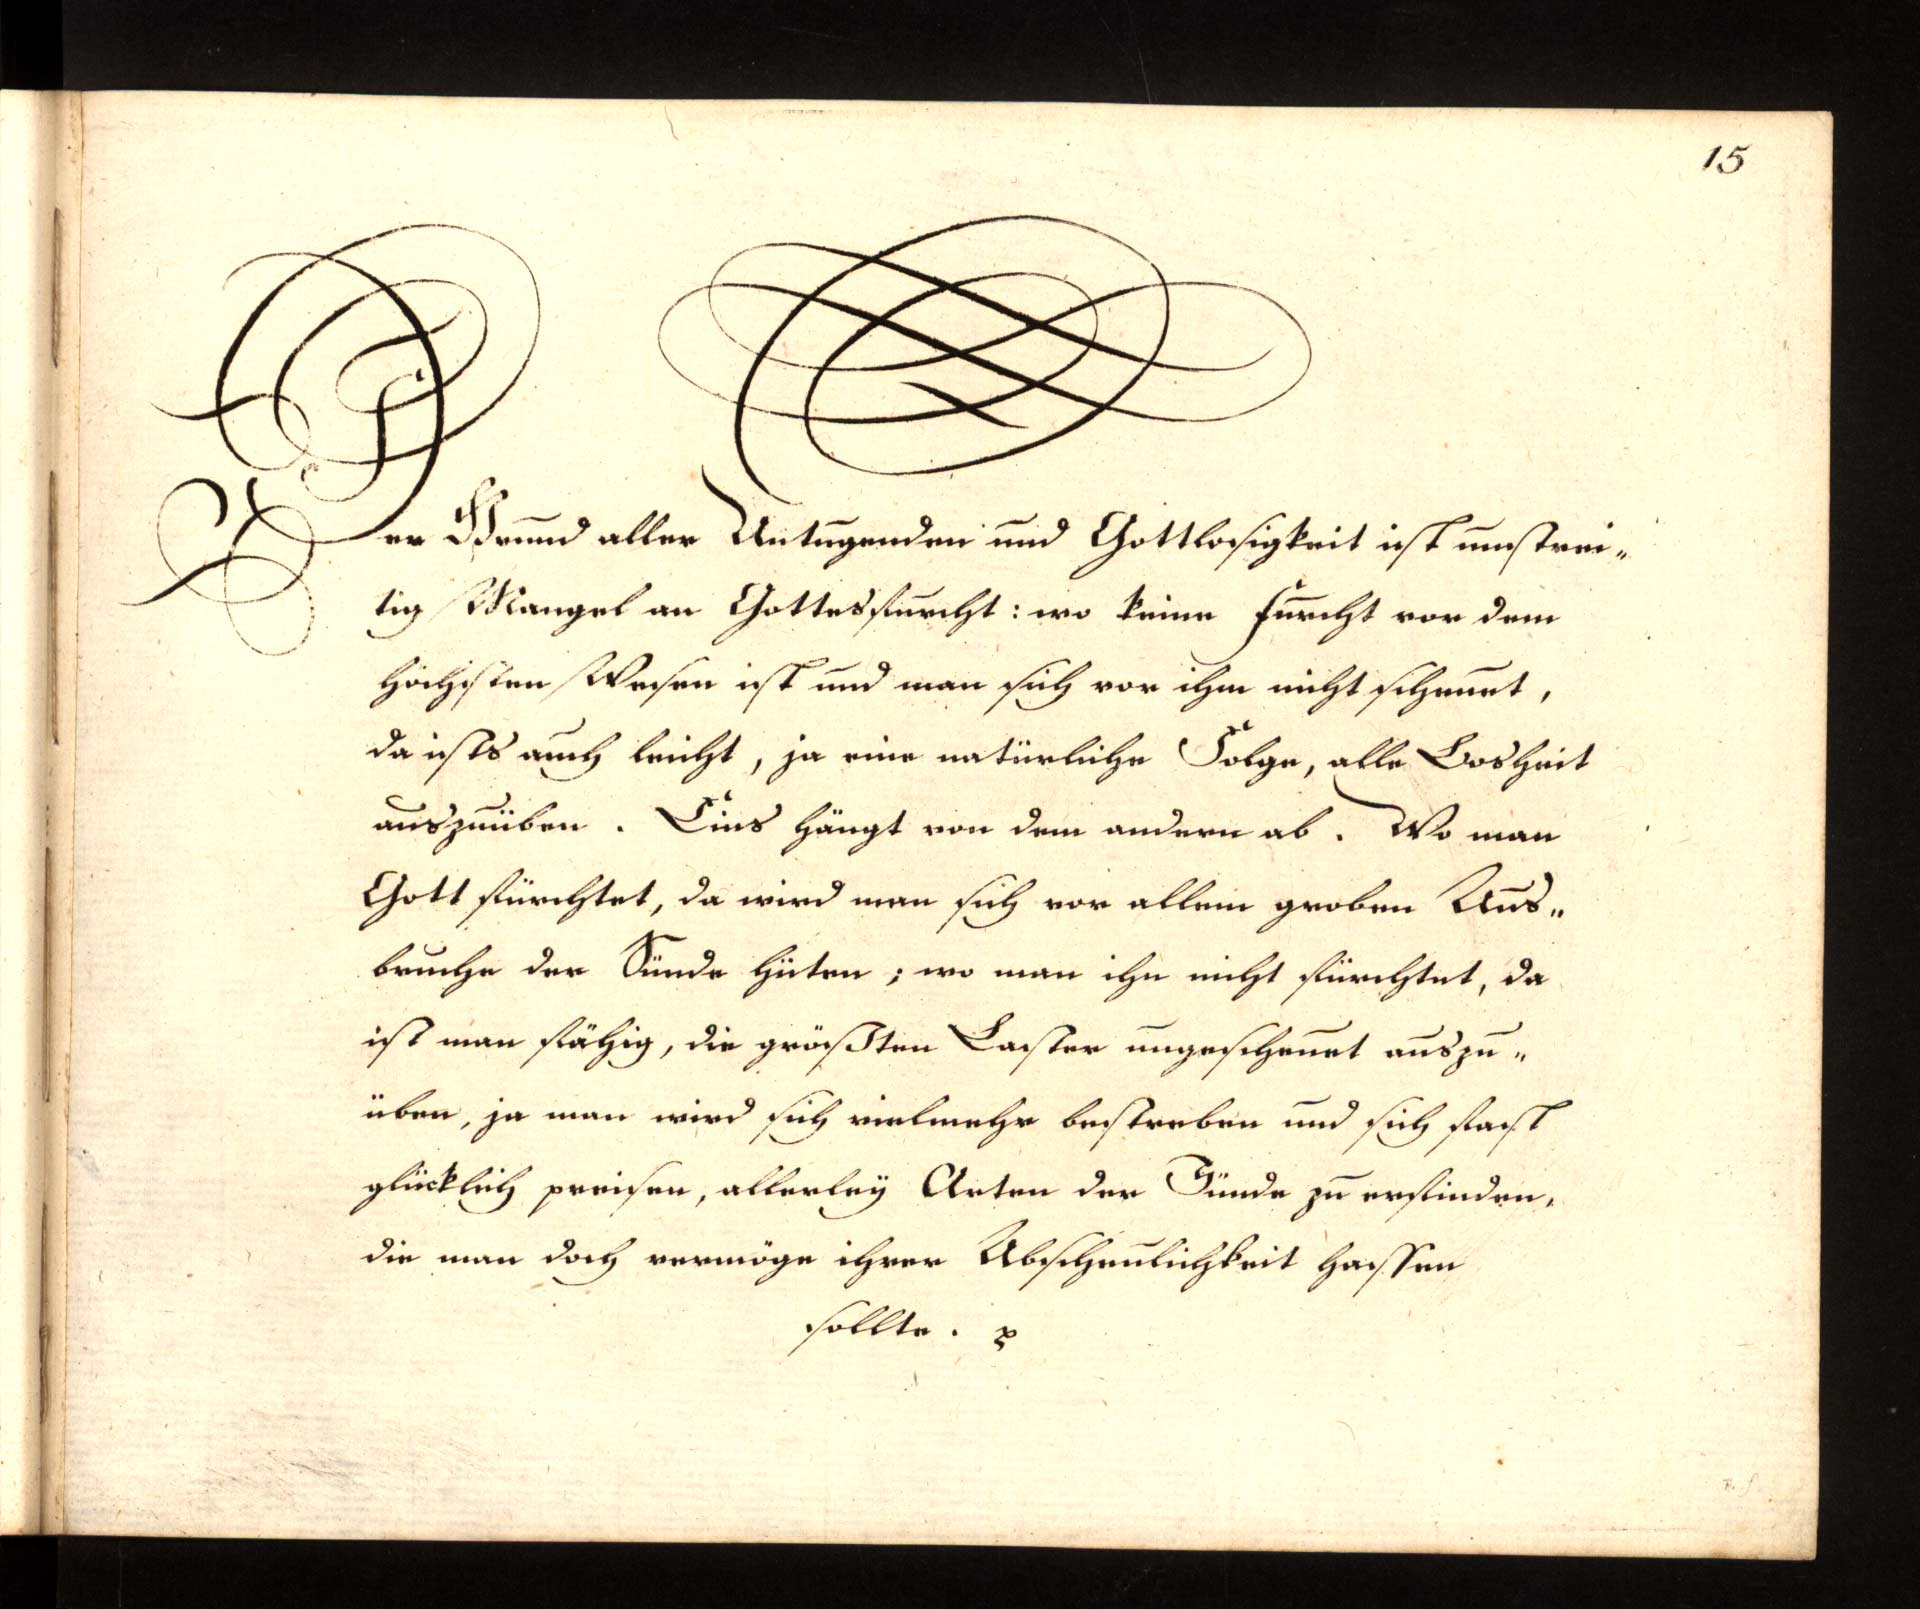 15
Der Grund aller Untugenden und Gottlosigkeit ist unstrei-
tig Mangel an Gottesfurcht: wo keine Furcht vor dem
höchsten Wesen ist und man sich vor ihm nicht scheuet,
da ists auch leicht, ja eine natürliche Folge, alle Bosheit
auszuüben. Eins hängt von dem andern ab. Wo man
Gott fürchtet, da wird man sich vor allem groben Aus-
bruche der Sünde hüten; wo man ihn nicht fürchtet, da
ist man fähig, die größten Laster ungescheuet auszu-
üben, ja man wird sich vielmehr bestreben und sich fast
glücklich preisen, allerley Arten der Sünde zu erfinden,
die man doch vermöge ihrer Abscheulichkeit hassen
sollte.